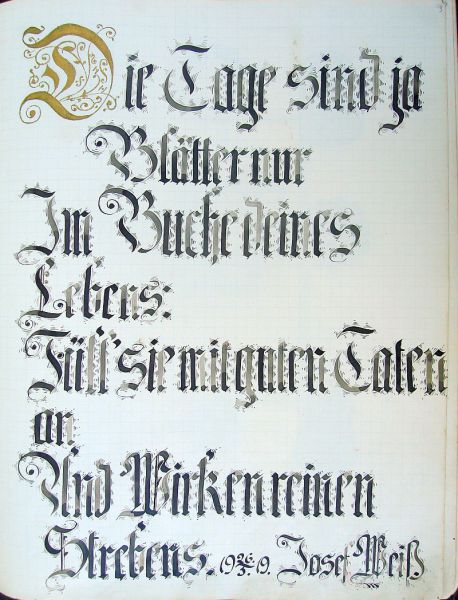 Die Tage sind ja
Blätter nur
Im Buche deines
Lebens:
Füll' sie mit guten Taten
an
Und Wirken reinen
Strebens. 19 26/3. 19. Josef Weiß